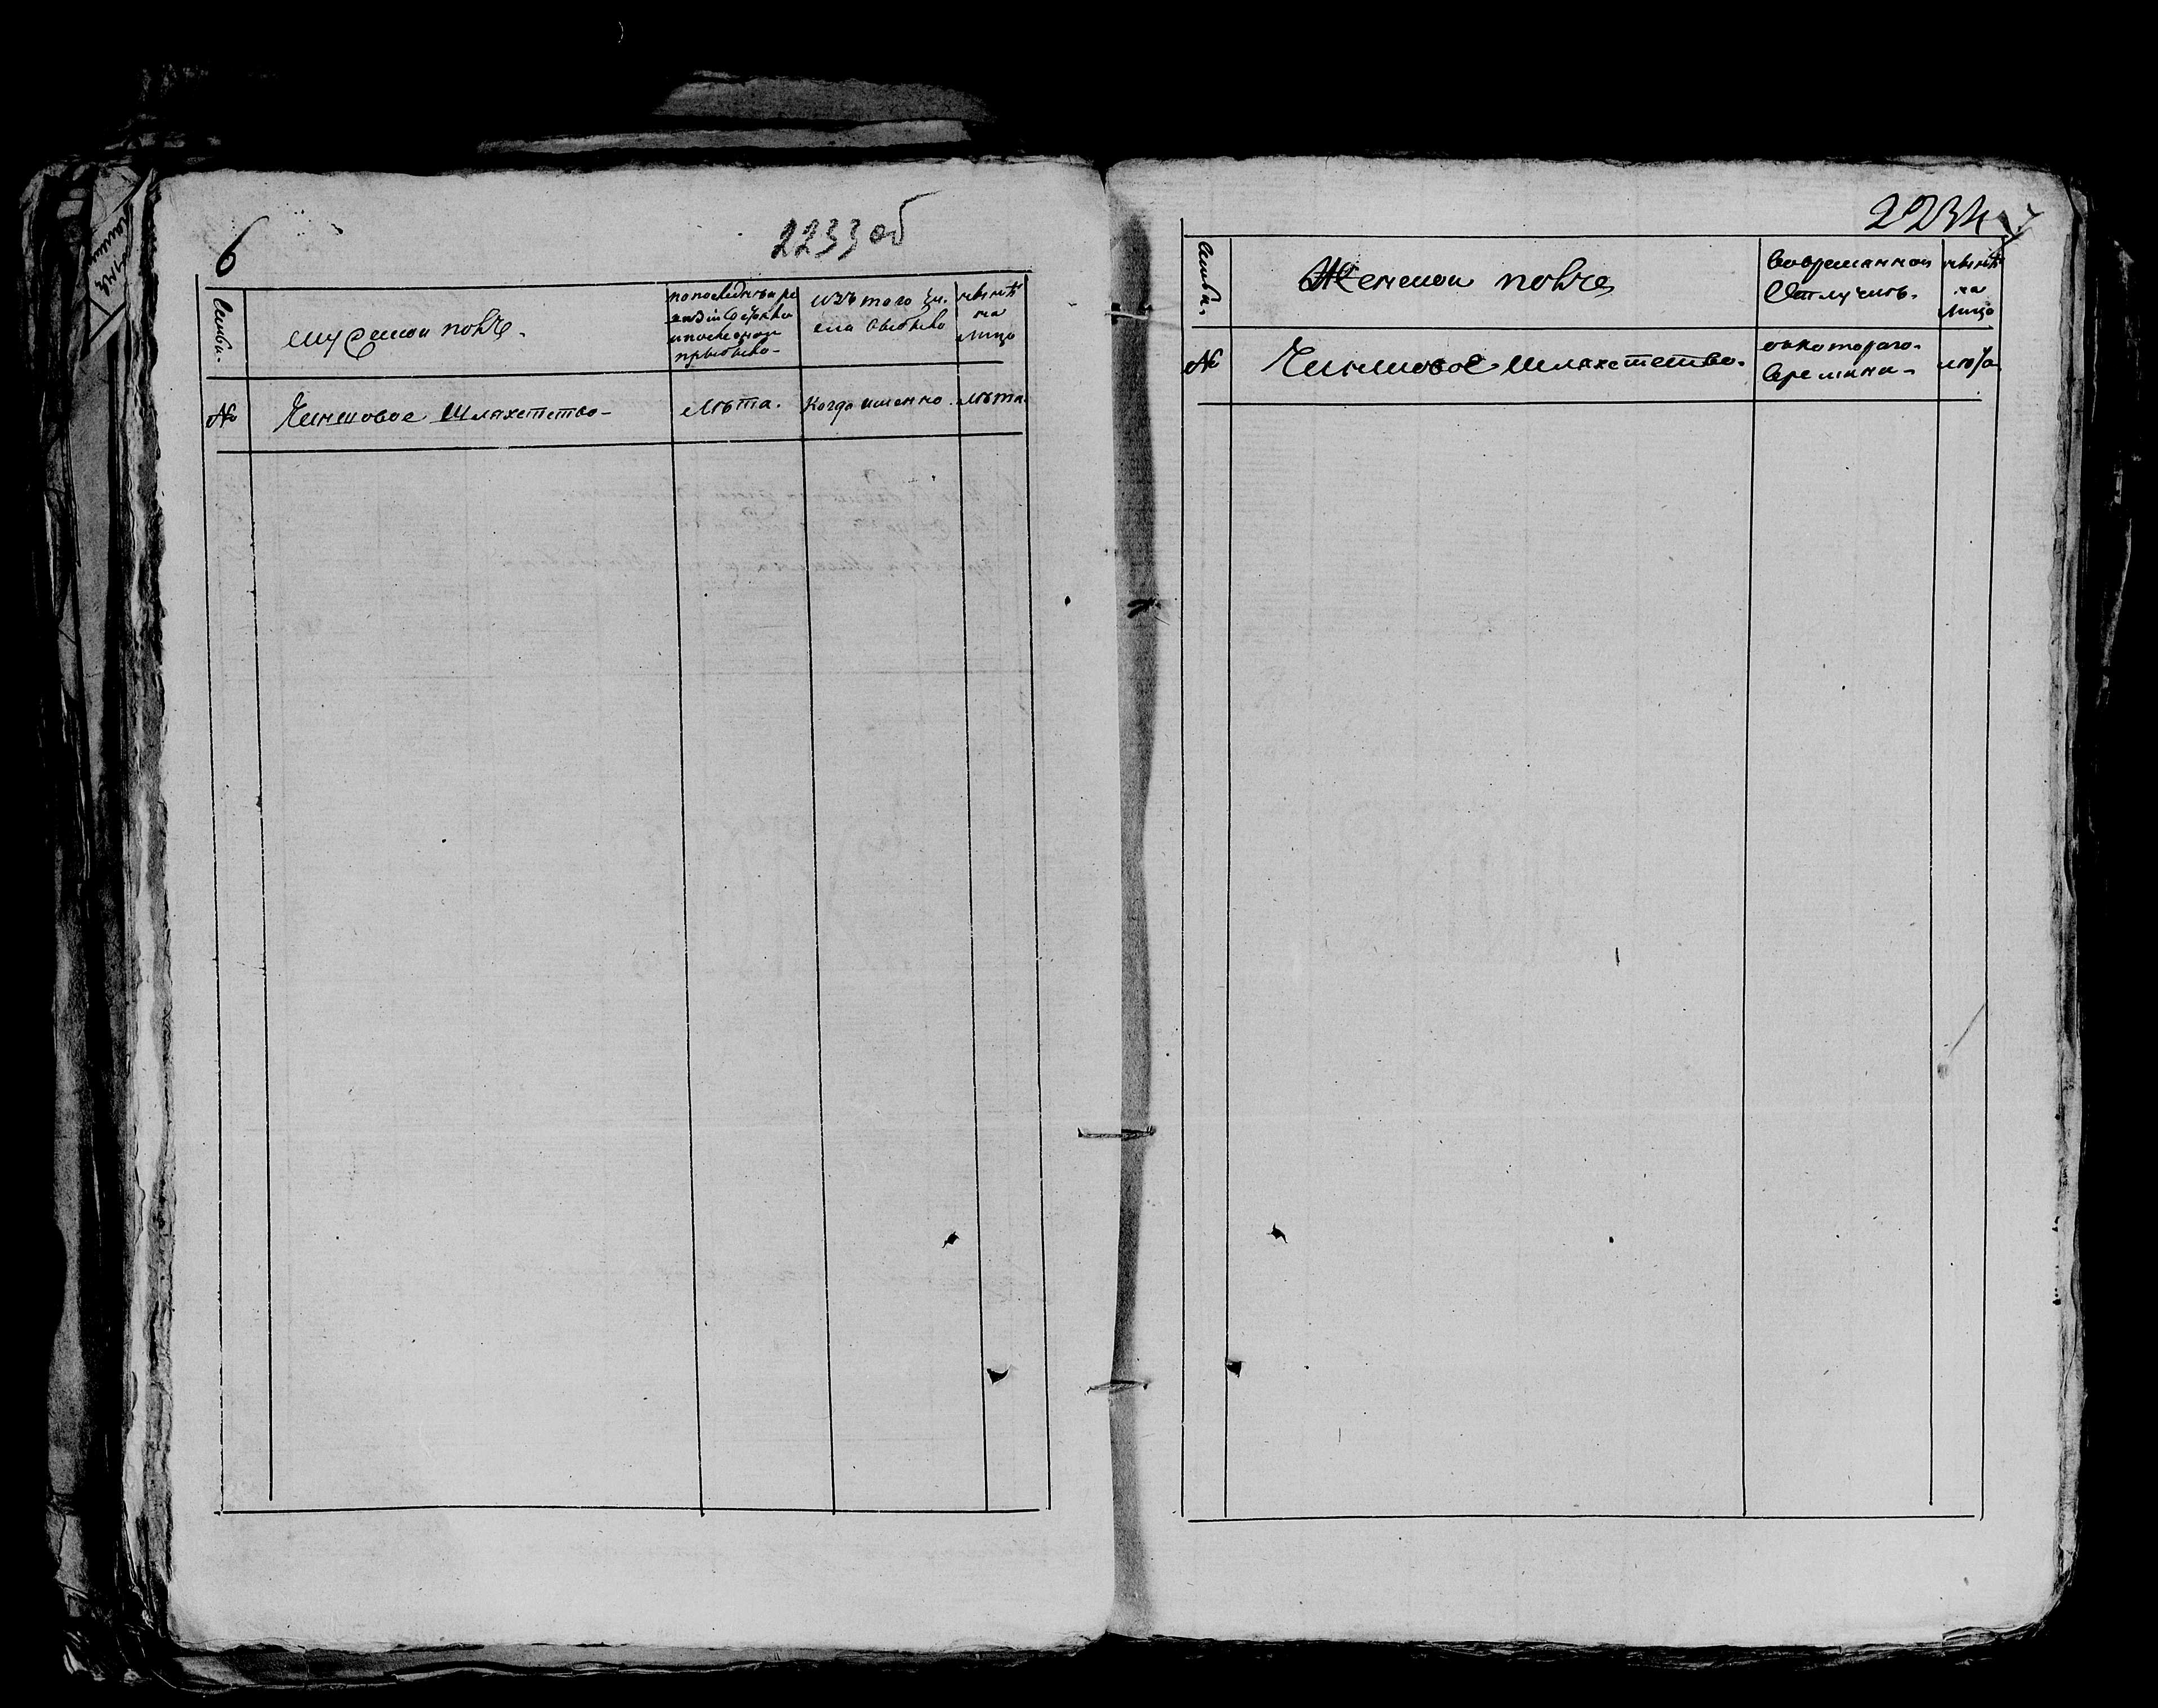 6
2233 об
Семьи.
мужеской полъ.
по последней ре
визіи состояло
и после оной
прибыло
изъ того чи.
сла выбыло
ныне
на
лицо
№
Чиншовое Шляхетство
лета.
Когда именно
лета.
2234
7
Семьи.
Женской полъ
во временной
Отлучке.
ныне
на
лицо
№
Чиншовое Шляхетство.
съ котораго
времени